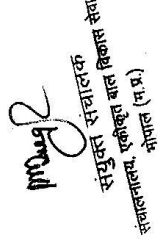 संयुक्त संचालक
संचालनालय, एकीकृत बाल विकास सेवा
भोपाल (म.प्र.)